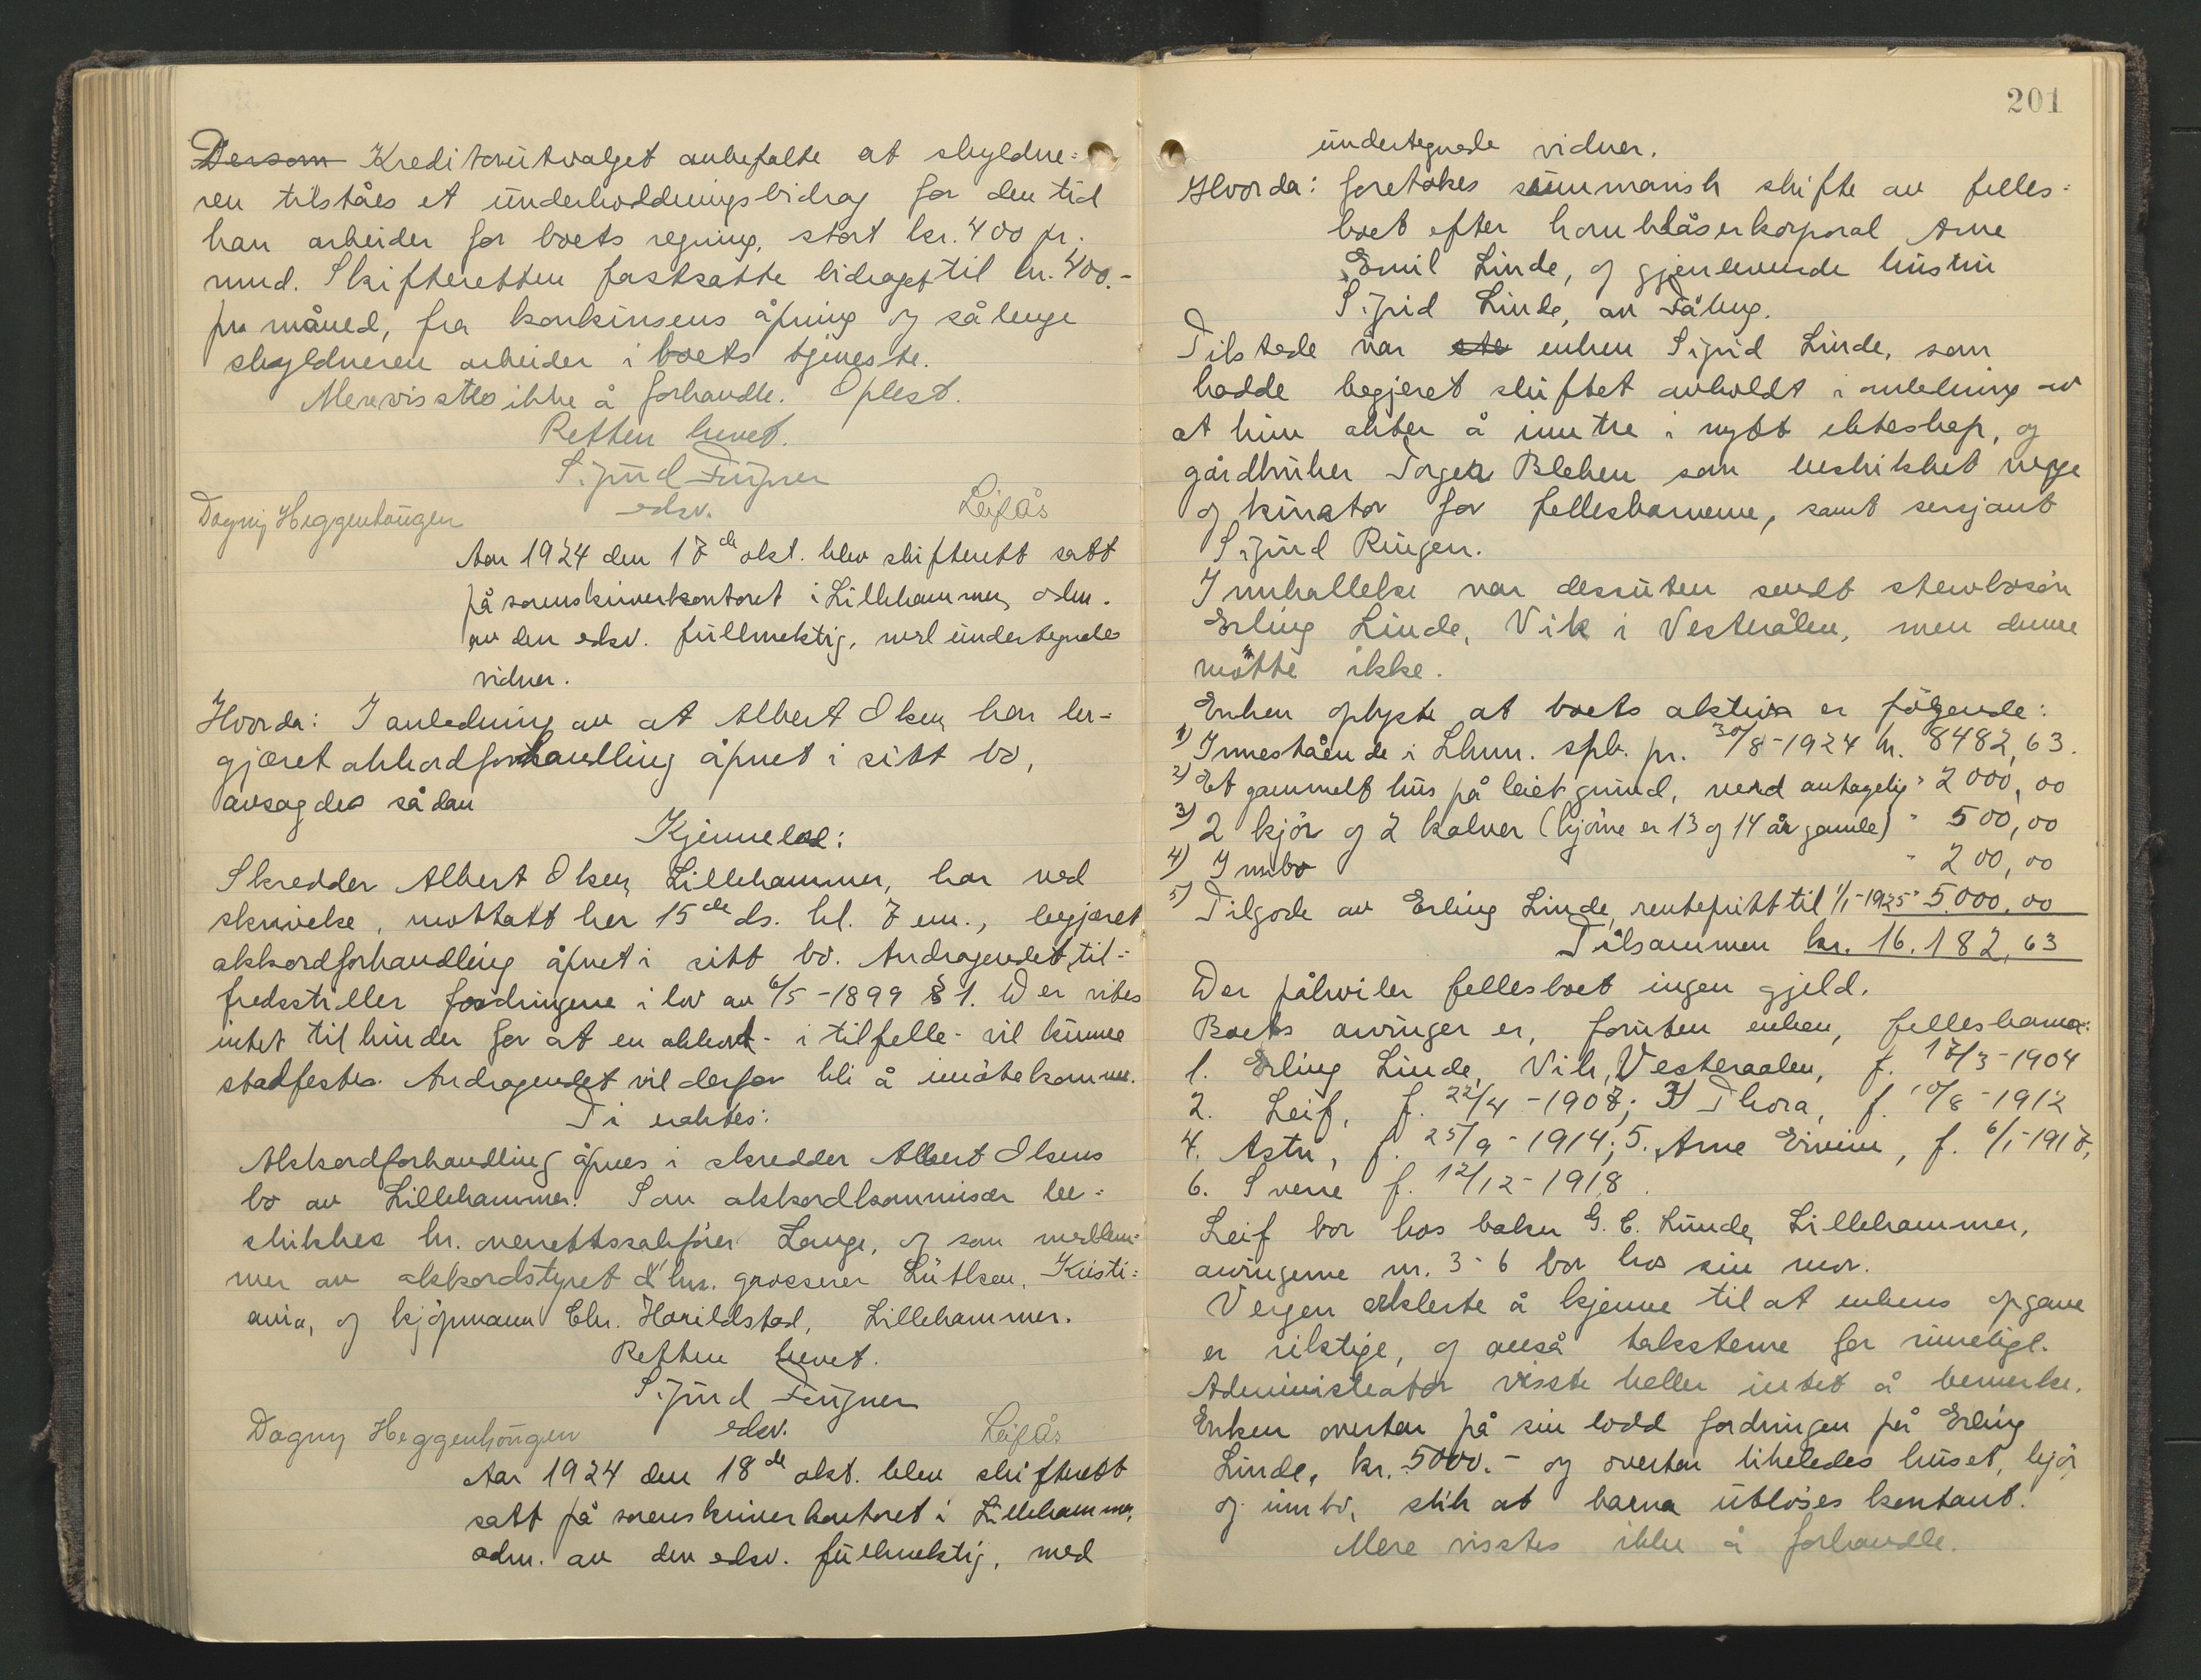 Dersom Kreditorutvalget anbefalte at skyldne=
ren tilståes et underholdningsbidrag for den tid
han arbeider for boets regning, stort kr. 400 pr.
mnd. Skifteretten fastsatte bidraget til kr. 400.-
pr. måned, fra konkursens åpning og så lenge
skyldneren arbeider i boets tjeneste.
Mere visstes ikke å forhandle. Oplest.
Retten hevet.
Sigurd
Dagny Heggenhougen edsv. Leif Ås
Aar 1924 den 17de okt. blev skifterett satt
på sorenskriverkontoret i Lillehammer, adm.
av den edsv. fullmektig, med undertegnede
vidner.
Hvorda: I anledning av at Albert Olsen har be-
gjæret akkordforhandling åpnet i sitt bo,
avsagdes sådan
Kjennelse:
Skredder Albert Olsen, Lillehammer, har ved
skrivelse, mottatt her 15de ds. kl. 7 em., begjæret
akkordforhandling åpnet i sitt bo. Andragendet til-
fredsstiller fordringene i lov av 6/5-1899 § 1. Der vites
intet til hinder for at en akkord - i tilfelle - vil kunne
stadfestes. Andragendet vil derfor bli å imøtekomme.
Ti eraktes:
Akkordforhandling åpnes i skredder Albert Olsens
bo av Lillehammer. Som akkordkommisær be=
skikkes hr. overrettssakfører Lange, og som medlem-
mer av akkordstyret d'hrr. grosserer Lütken, Kristi=
ania, og kjøpmann Chr. Harildstad, Lillehammer.
Retten hevet.
Sigurd
Dagny Heggenhougen edsv. Leif Ås
Aar 1924 den 18de okt. blev skifterett
satt på sorenskriverkontoret i Lillehammer,
adm. av den edsv. fullmektig, med
201
undertegnede vidner.
Hvorda: foretokes summarisk skifte av felles=
boet efter hornblåserkorporal Arne
Emil Linde, og gjenlevende hustru
Sigrid Linde, av Fåberg.
Tilstede var enken Sigrid Linde, som
hadde begjeret skiftet avholdt i anledning av
at hun akter å inntre i nytt ekteskap, og
gårdbruker Torger Bleken som beskikket verge
og kurator for fellesbarnene, samt sersjant
Sigurd Ringen.
Innkallelse var dessuten sendt stedsøn
Erling Linde, Vik i Vesterålen, men denne
møtte ikke.
Enken oplyste at boets aktiva er følgende:
1) Innestående i Lhmr. spb. pr. 30/8-1924 kr. 8482,63.
2) Et gammelt hus på leiet grund, verd antagelig " 2000,00
3) 2 kjør og 2 kalver (kjørne er 13 og 14 år gamle) " 500,00
4) Innbo " 200,00
5) Tilgode av Erling Linde, rentefritt til 1/1-1925 " 5.000,00
Tilsammen kr. 16.182,63
Der påhviler fellesboet ingen gjeld.
Boets arvinger er, foruten enken, fellesbarna:
1. Erling Linde, Vik, Vesteraalen, f. 17/3-1904
2. Leif, f. 22/4-1907; 3) Thora, f. 10/8-1912
4. Astri, f. 25/9-1914; 5. Arne Ervin, f. 6/1-1917,
6. Sverre f. 12/12-1918.
Leif bor hos baker G. E. Lunde, Lillehammer,
arvingerne nr. 3-6 bor hos sin mor.
Vergen erklerte å kjenne til at enkens opgave
er riktige, og anså takstene for rimelige.
Administrator visste heller intet å bemerke.
Enken overtar på sin lodd fordringen på Erling
Linde, kr. 5000.- og overtar likeledes huset, kjør
og innbo, slik at barna utløses kontant.
Mere visstes ikke å forhandle.